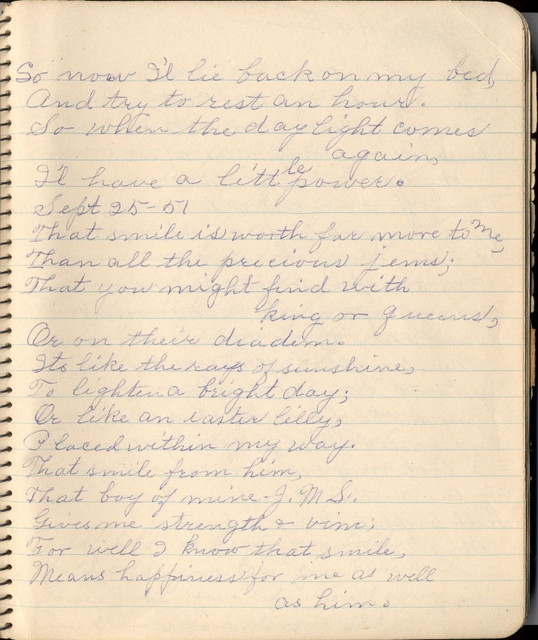 So now I'l lie back on my bed,
And try to rest an hour.
So when the day light comes
again,
I'l have a little power.
Sept 25-51
That smile is worth far more to me,
Than all the precious jems;
That you might find with
king or queens,
Or on their diadem.
Its like the rays of sunshine,
To lighten a bright day;
Or like an easter lilly,
Placed within my way.
That smile from him,
That boy of mine - J. M. S.
Gives me strength & vim;
For well I know that smile,
Means happiness for me as well
as him.